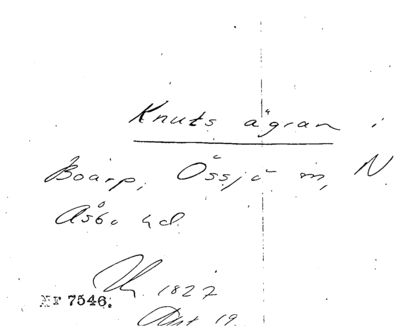 Knuts ågran i
Boarp, Össjö sn, N
Åsbo hd.
1827
Nr 7546.
19